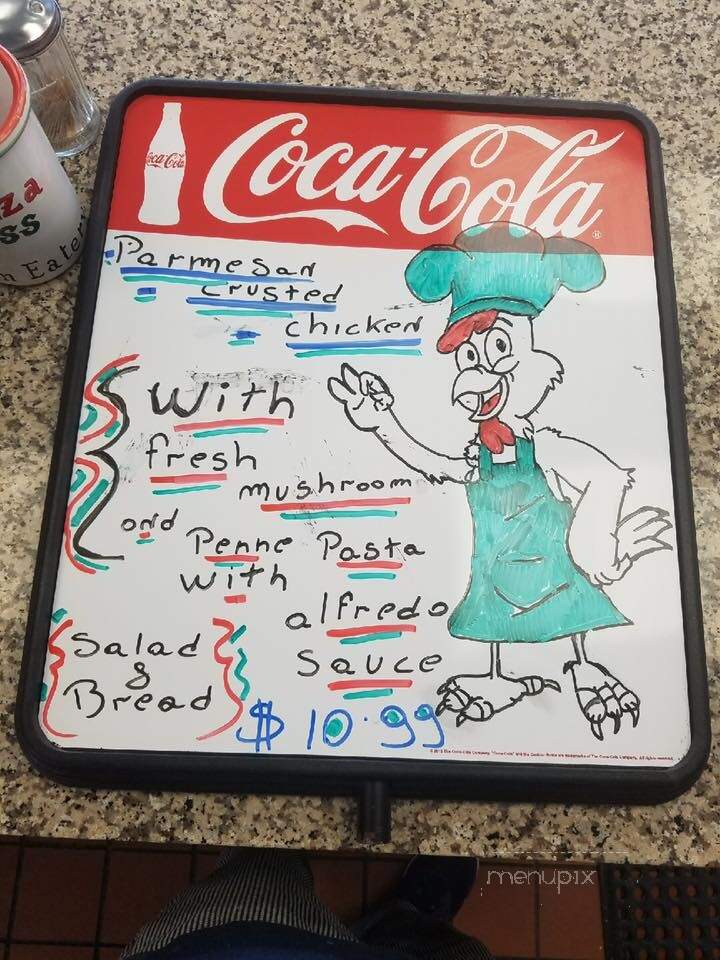 Coca-Cola
Coca-Cola
Parmesan
crusted
chicken
With
fresh
mushroom
and
Penne Pasta
with
alfredo
Sauce
Salad
&
Bread
$ 10.99
za
ss
n Eater
menupix